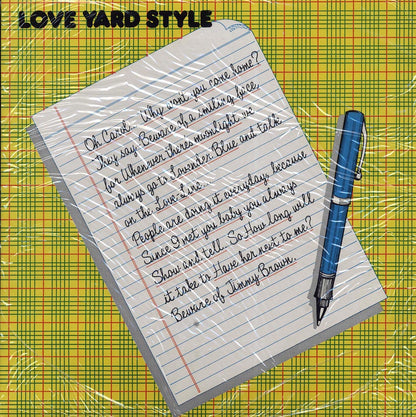 LOVE YARD STYLE
Oh Carol. Why wont you come home?
They say Beware of a smiling face
for Whenever theres moonlight we
always go to Lavender Blue and talk
on the Love-Line.
People are doing it everydays because
Since I met you baby you always
Show and tell. So How long will
it take to Have her next to me?
Beware of Jimmy Brown.